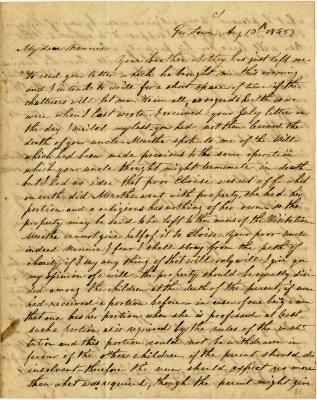 Geo Town Aug 10th 1845
My dear Nannie
Your brother Notley has just left me
to read your letter which he brought me this evening
and I intend to write for a short space of time if the
chatterers will let me. We are all as regards health as we
were when I last wrote. I received your July letter on
the day I mailed my last, you had not then learnt the
death of your uncle. Martha spoke to me of the Will
which had been made previous to the same operation
which your uncle thought might terminate in death
but I had no idea that poor Eloise was out of it. What
on earth did Martha want with property, she had her
portion and a religious has nothing of her own so the
property may be said to be left to the nuns of the Visitation
Martha cannot give half of it to Eloise. Your poor uncle
indeed Nannie I fear I shall stray from the path of
charity if I say any thing of that will only will I give you
my opinion of wills - the property should be equally divi-
ded among the children at the death of the parent, if any
had received a portion before - in case of one being a nun
that one has her portion when she is professed at least
such a portion as is required by the rules of the insti-
tution and this portion could not be withdrawn in
favour of the other children if the parent should die
insolvent therefore the nun should expect no more
than what was required, though the parent might give